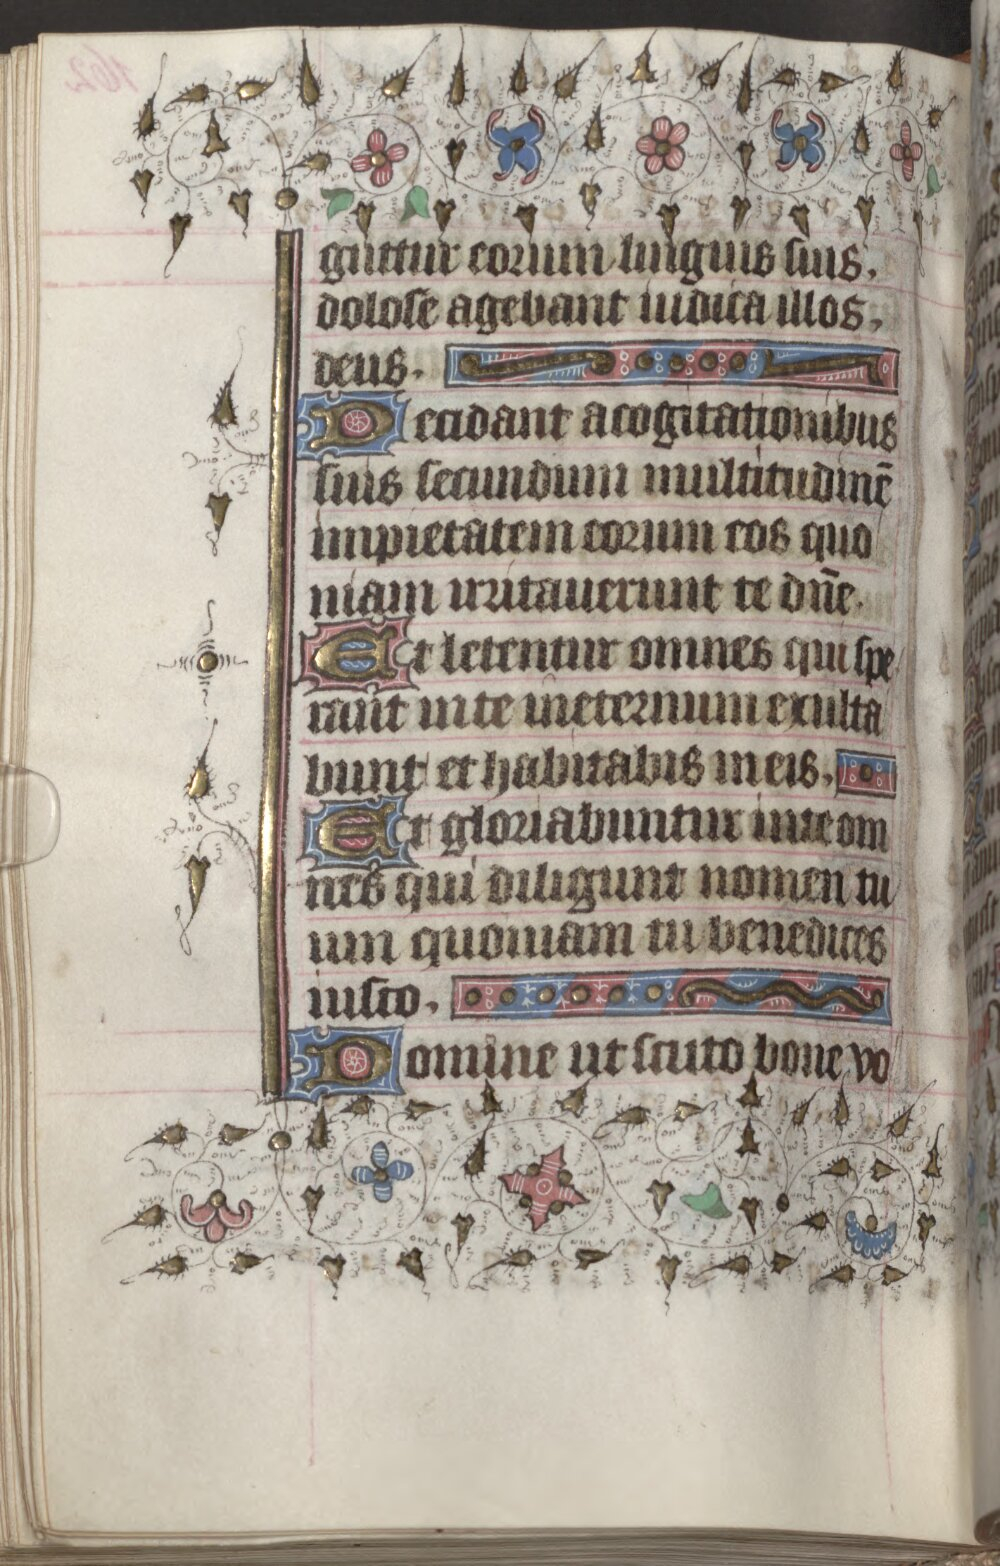 guttur eorum linguis suis.
dolose agebant iudica illos.
deus.
Decidant a cogitationibus
suis secundum multitudinē
impietatem eorum eos quo
niam irritauerunt te dn̄e.
Et letentur omnes qui spe
rant in te in eternum exulta
bunt et habitabis in eis.
Et gloriabuntur in te om
nes qui diligunt nomen tu
um quoniam tu benedices
iusto.
Domine ut scuto bone vo